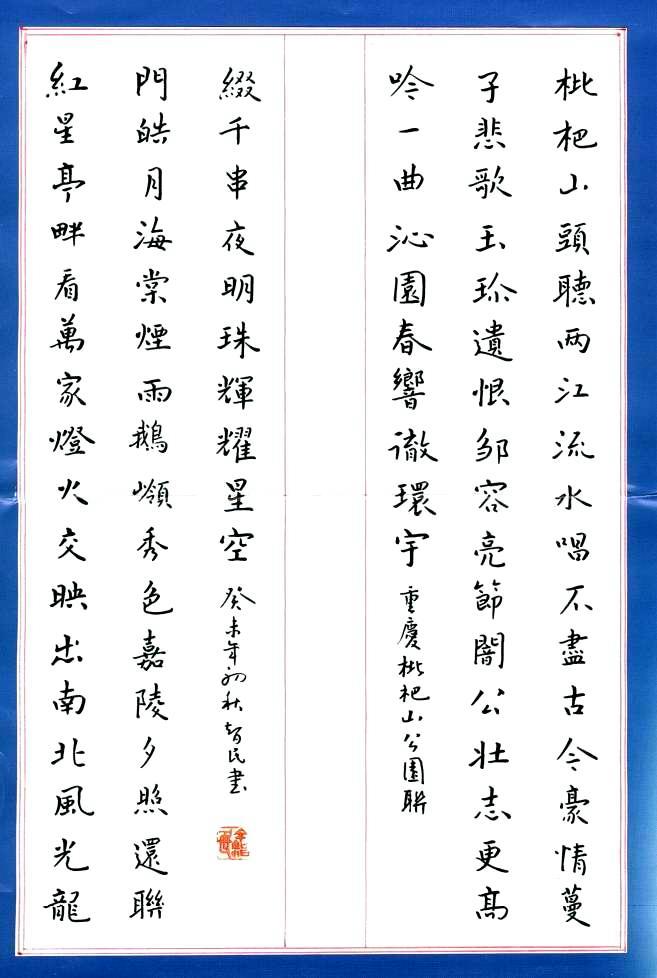 枇杷山頭聽两江流水唱不盡古今豪情蔓
子悲歌玉珍遺恨邹容亮節闇公壯志更高
吟一曲沁園春響徹環宇
重慶枇杷山公園聯
紅星亭畔看萬家燈火交映出南北風光龍
門皓月海棠煙雨鵝嶺秀色嘉陵夕照還聯
綴千串夜明珠輝耀星空
癸未年初秋智民書